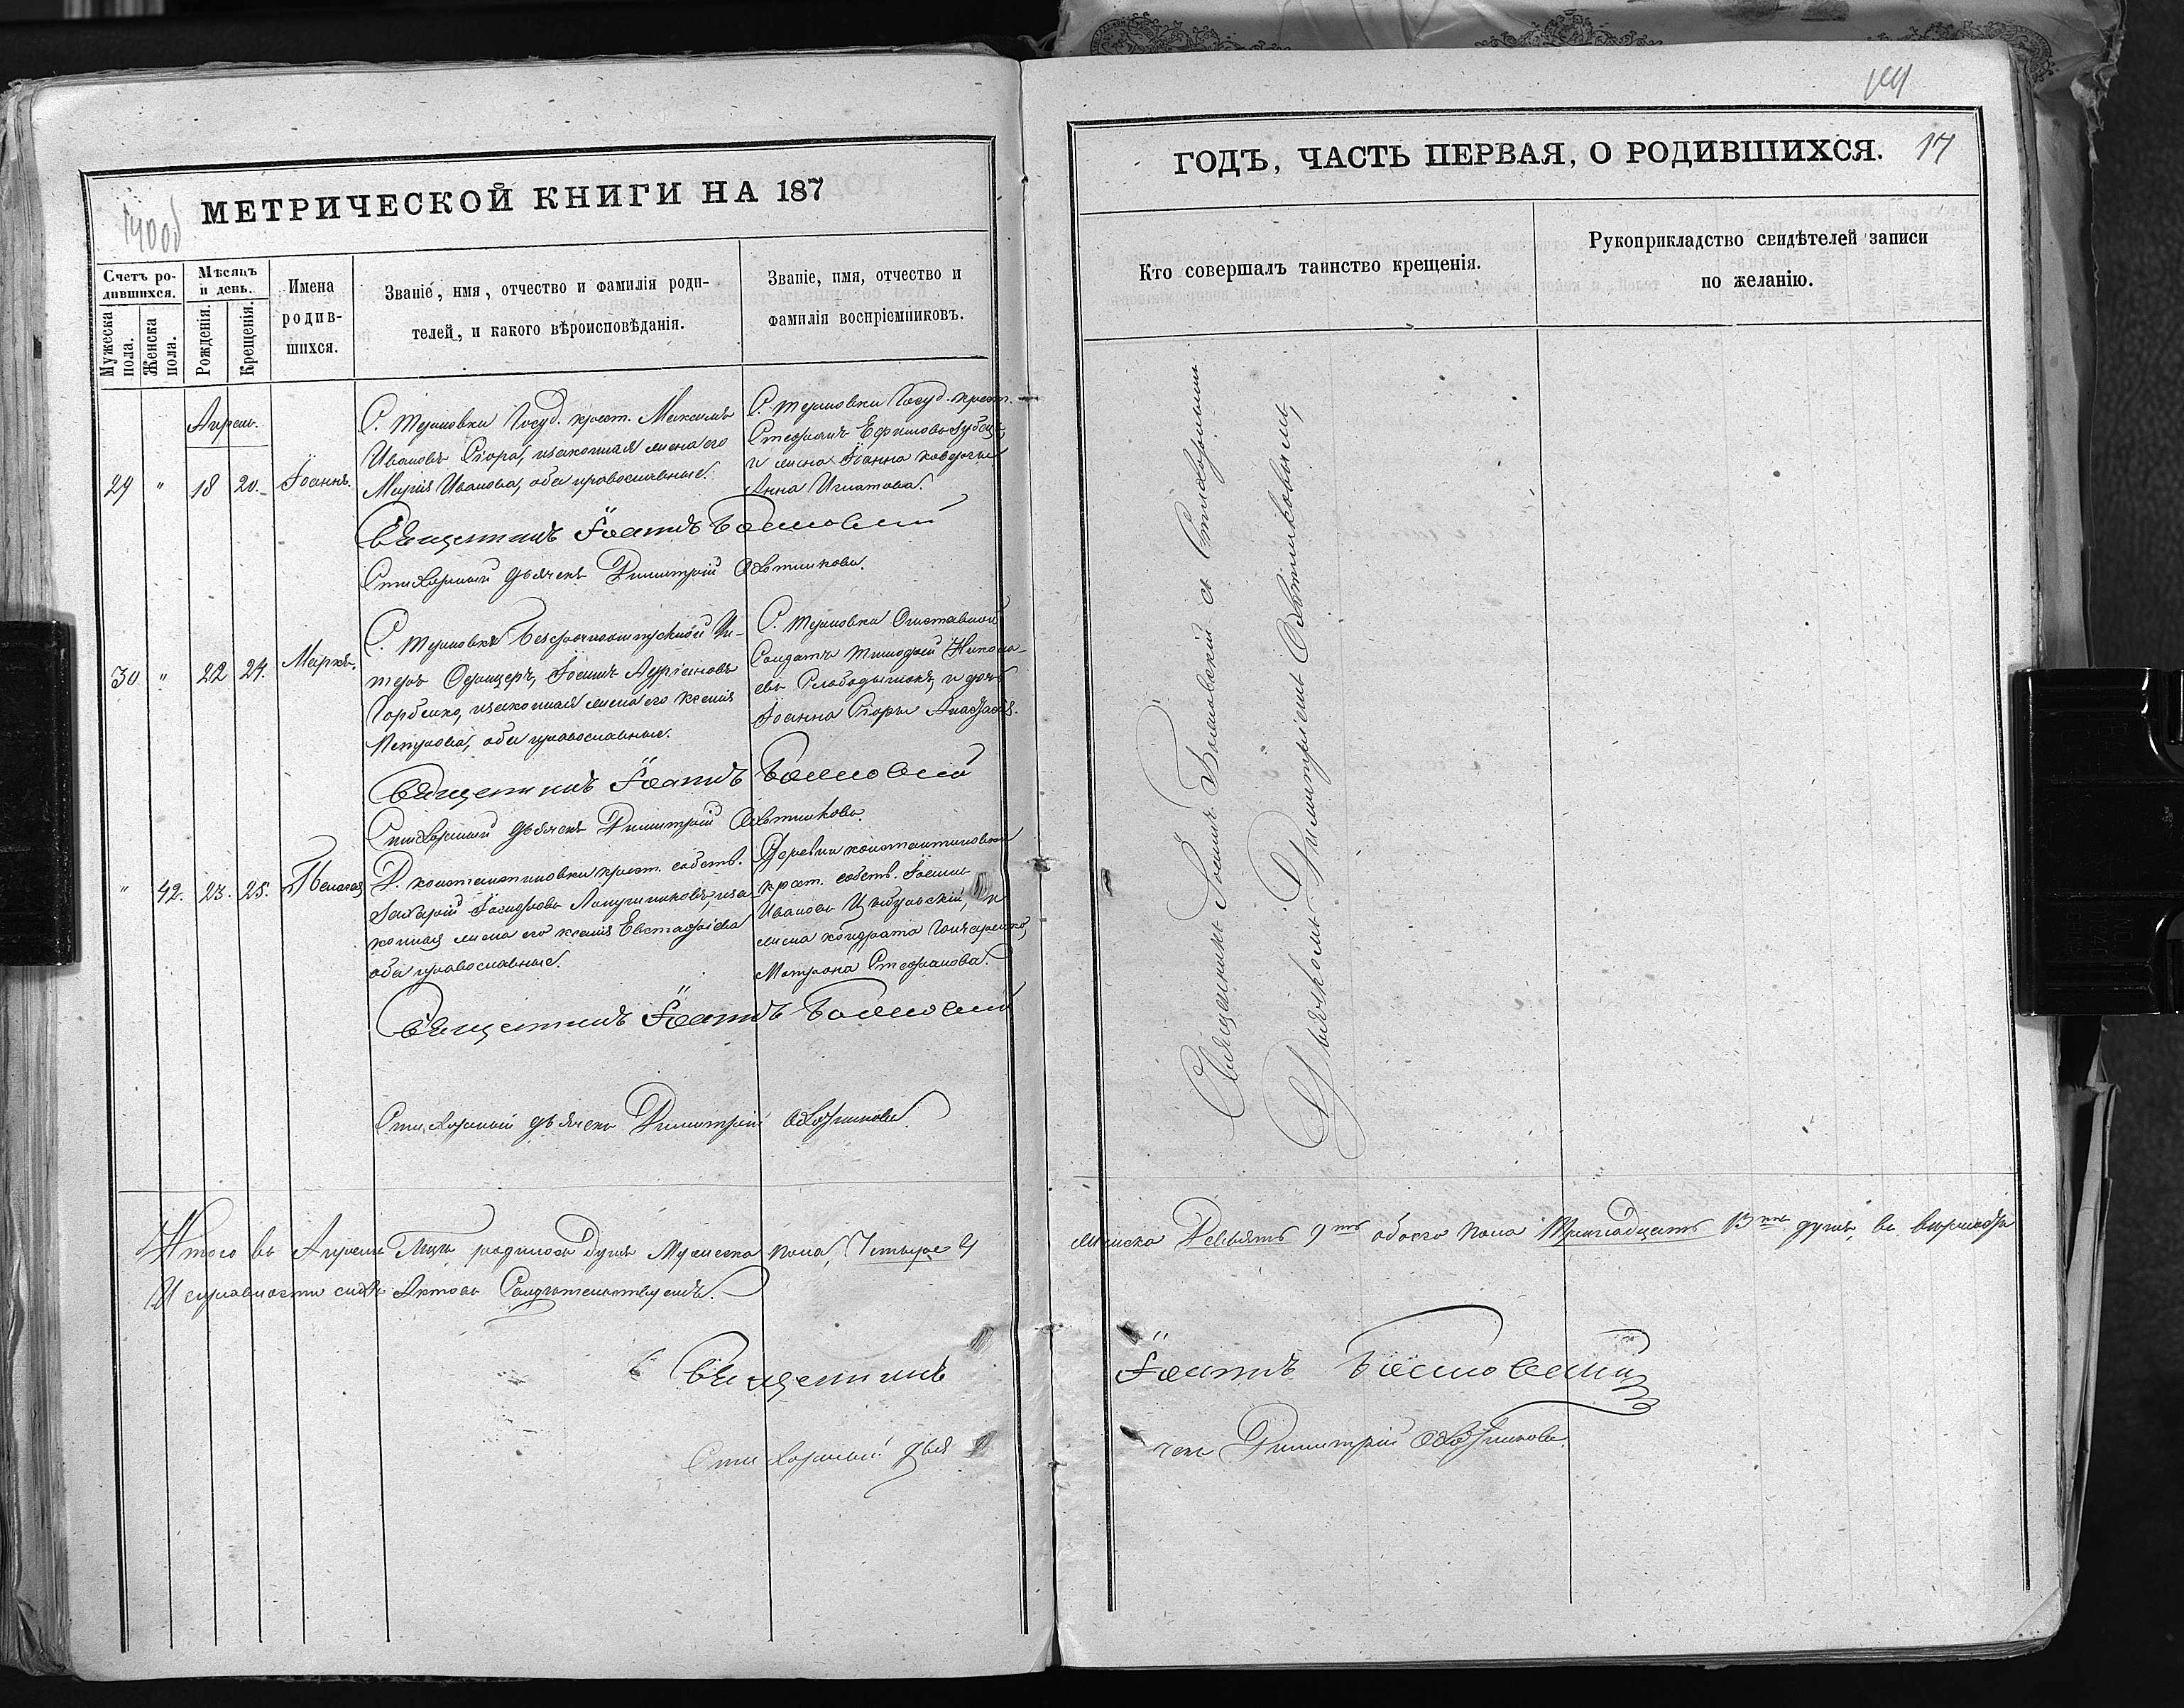 140об
МЕТРИЧЕСКОЙ КНИГИ НА 187
Счетъ ро-
дившихся.
Мужеска пола.
Женска пола.
Мѣсяцъ
и день.
Рожденія.
Крещенія.
Имена
родив-
шихся.
Званіе, имя, отчество и фамилія роди-
телей, и какого вѣроисповѣданія.
Званіе, имя, отчество и
фамилія воспріемниковъ.
Апрель.
29 " 18 20. Іоаннъ.
С. Терновки Госуд. крест. Максимъ
Ивановъ Сѣора, и законная жена его
Марія Иванова, оба православные.
С. Терновки Госуд. крест.
Стефанъ Ефимовъ
и жена Іоанна
Анна Игнатова.
Священникъ Іоаннъ
Стихарный дьячекъ Димитрій Охотниковъ.
30 " 22 24. Маркъ.
С. Терновки Безсрочноотпускной Ун-
теръ Офицеръ, Іоаннъ Адріановъ
Горбенко, и законная жена его Ксенія
Петрова, оба православные.
С. Терновки Отставной
Солдатъ Тимофей Никола-
евъ Слободянюкъ, и дочь
Іоанна Сѣоры Анастасія.
Священникъ Іоаннъ
Стихарный дьячекъ Димитрій Охотниковъ.
" 42. 23. 25. Пелагія
Д. Константиновки крест. собств.
Захарій Іосифовъ Лопушняковъ, и за-
конная жена его Ксенія Евстафіева
оба православные.
Деревни Константиновки
крест. собств. Іоаннъ
Ивановъ Цыбульскій, и
жена Кондрата Гончаренко,
Матрона Стефанова.
Священникъ Іоаннъ
Стихарный дьячекъ Димитрій Охотниковъ.
Итого въ Апрелѣ Мцѣ, родилось Душъ Мужеска пола, Четыре 4
Исправности сихъ Актовъ Свидѣтельствуемъ.
Священникъ
Стихарный дья
141
ГОДЪ, ЧАСТЬ ПЕРВАЯ, О РОДИВШИХСЯ. 17
Кто совершалъ таинство крещенія.
Рукоприкладство свидѣтелей записи
по желанію.
Священникъ Іоаннъ съ Стихарнымъ
Дьячкомъ Димитріемъ Охотниковымъ,
женска Девять 9ть обоего пола Тринадцать 13ть душъ, въ
Іоаннъ
чекъ Димитрій Охотниковъ.